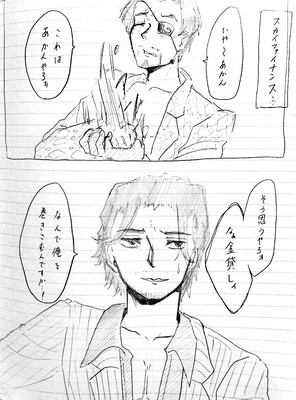 スカイファイナンス…
いや〜あかん
これは
あかんやろぉ
そう思うやろぉ
な金貸しィ
なんで俺を
巻きこむんですか！